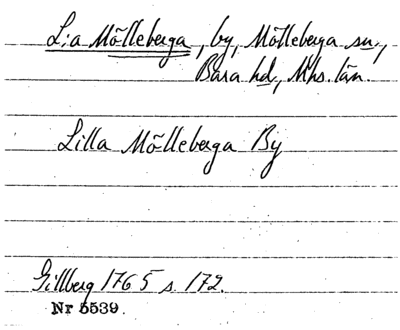 L:a Mölleberga, by, Mölleberga sn,
Bara hd, Mhs. län.
Lilla Mölleberga By
Gillberg 1765 s. 172.
Nr 5539.